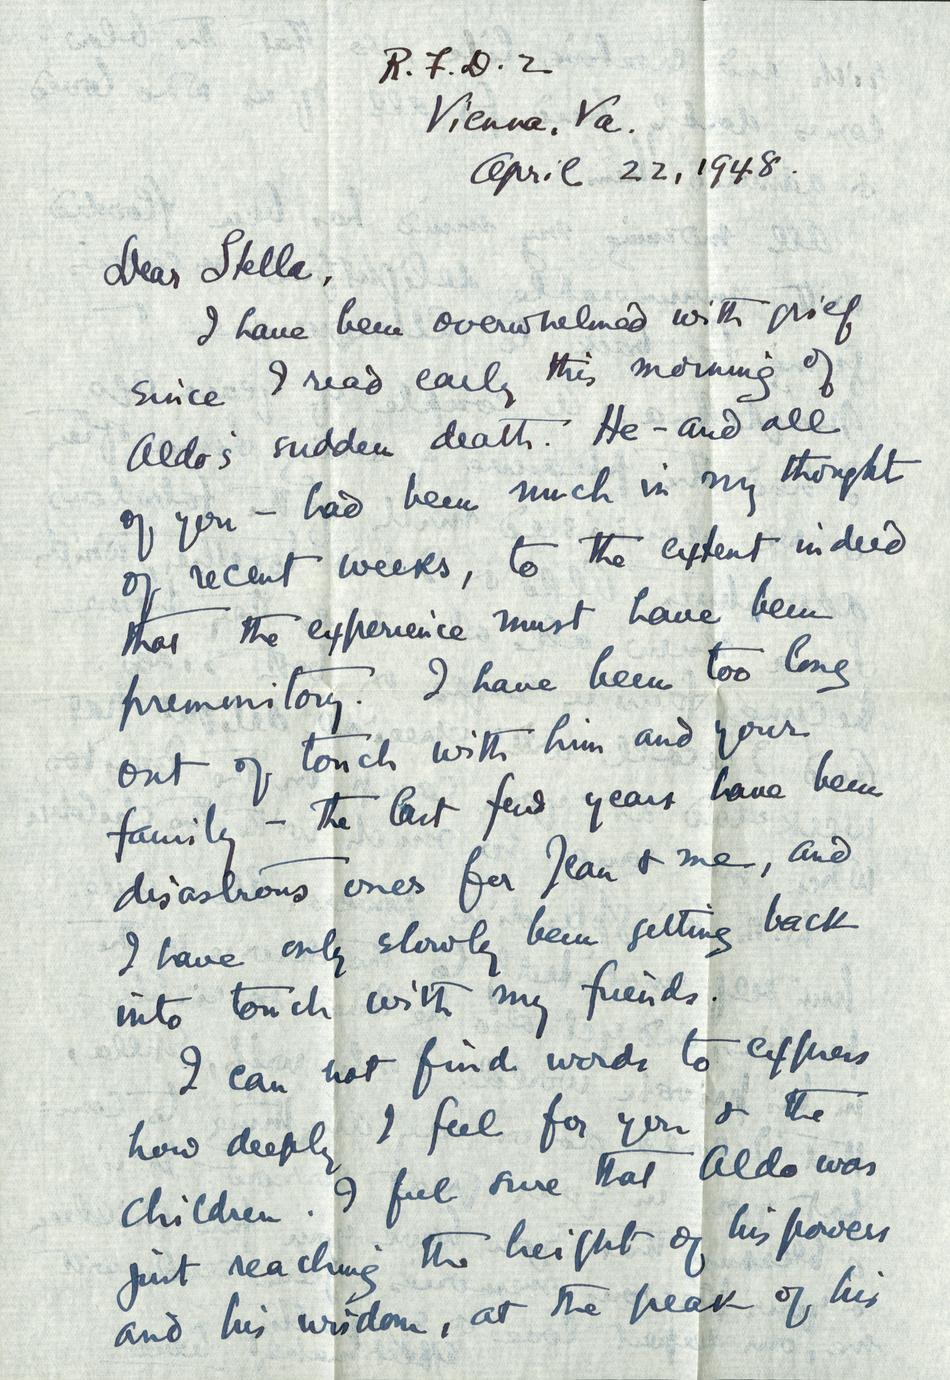 R.F.D. 2
Vienna, Va.
April 22, 1948.
Dear Stella,
I have been overwhelmed with grief
since I read early this morning of
Aldo's sudden death. He - and all
of you - had been much in my thought
of recent weeks, to the extent indeed
that the experience must have been
premonitory. I have been too long
out of touch with him and your
family - the last few years have been
disastrous ones for Jean & me, and
I have only slowly been getting back
into touch with my friends.
I can not find words to express
how deeply I feel for you & the
children. I feel sure that Aldo was
just reaching the height of his powers
and his wisdom, at the peak of his